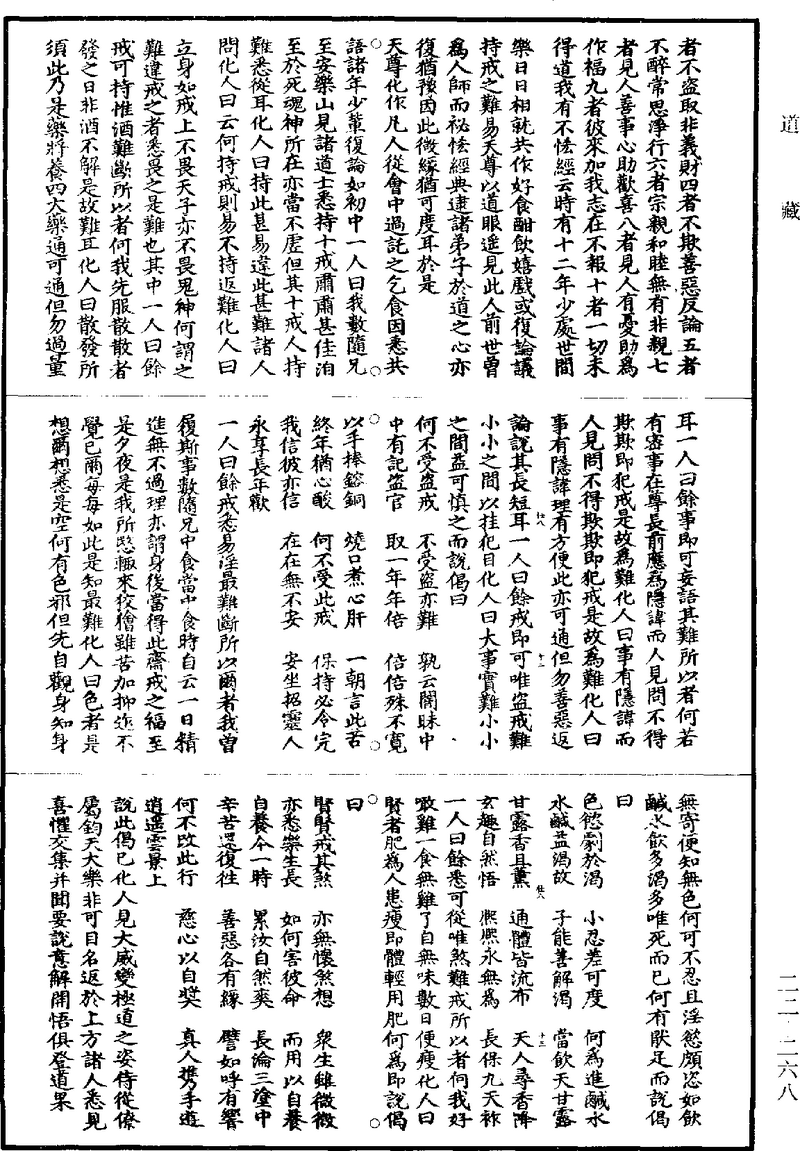 道藏
者不盜取非義財四者不欺善惡反論五者
不醉常思淨行六者宗親和睦無有非親七
者見人善事心助歡喜八者見人有憂助為
作福九者彼來加我志在不報十者一切未
得道我有不恡經云時有十二年少處世間
樂日日相就共作好食酣飲嬉戲或復論議
持戒之難易天尊以道眼遥見此人前世曾
為人師而祕恡經典逮諸弟子於道之心亦
復猶豫因此微緣猶可度耳於是
天尊化作凡人從會中過託之乞食因悉共
語諸年少輩復論如初中一人曰我數隨兄
至安樂山見諸道士悉持十戒肅肅甚佳洎
至於死魂神所在亦當不虛但其十戒人持
難悉從耳化人曰持此甚易違此甚難諸人
問化人曰云何持戒則易不持返難化人曰
立身如戒上不畏天子亦不畏鬼神何謂之
難違戒之者悉畏之是難也其中一人曰餘
戒可持惟酒難斷所以者何我先服散散者
發之日非酒不解是故難耳化人曰散發所
須此乃是藥將養四大藥通可通但勿過量
耳一人曰餘事即可妄語其難所以者何若
有密事在尊長前應為隱諱而人見問不得
欺欺即犯戒是故為難化人曰事有隱諱而
人見問不得欺欺即犯戒是故為難化人曰
事有隱諱理有方便此亦可通但勿善惡返
論說其長短耳一人曰餘戒即可唯盜戒難
小小之間以挂犯目化人曰大事實難小小
之間益可慎之而說偈曰
何不受盜戒 不受盜亦難 孰云闇昧中
中有記盜官 取一年年倍 倍倍殊不寬
以手捧鎔銅 燒口煮心肝 一朝言此苦
終年猶心酸 何不受此戒 保持必令完
我信彼亦信 在在無不安 安坐招靈人
永享長年歡
一人曰餘戒悉易淫最難斷所以爾者我曾
履斯事數隨兄中食當中食時自云一日精
進無不過理亦謂身後當得此齋戒之福至
是夕夜是我所慜輒來狡獪雖苦加抑迮不
覺已爾每每如此是知最難化人曰色者是
想爾想悉是空何有色邪但先自觀身知身
無寄便知無色何可不忍且淫慾頗恣如飲
鹹水飲多渴多唯死而已何有猒足而說偈
曰
色慾劇於渴 小忍差可度 何為進鹹水
水鹹益渴故 子能善解渴 當飲天甘露
甘露香且薰 通體皆流布 天人尋香降
玄趣自然悟 熙熙永無為 長保九天祚
一人曰餘悉可從唯煞難戒所以者何我好
噉雞一食無雞了自無味數日便瘦化人曰
賢者肥為人患瘦即體輕用肥何為即說偈
曰
賢賢戒其煞 亦無懷煞想 衆生雖微微
亦悉樂生長 如何害彼命 而用以自養
自養今一時 累汝自然爽 長淪三塗中
辛苦還復往 善惡各有緣 譬如呼有響
何不改此行 慈心以自奬 真人携手遊
逍遥雲景上
說此偈已化人見大威變極道之姿侍從僚
屬鈞天大樂非可目名返於上方諸人悉見
喜懼交集并聞要說意解開悟俱登道果
二二·二六八